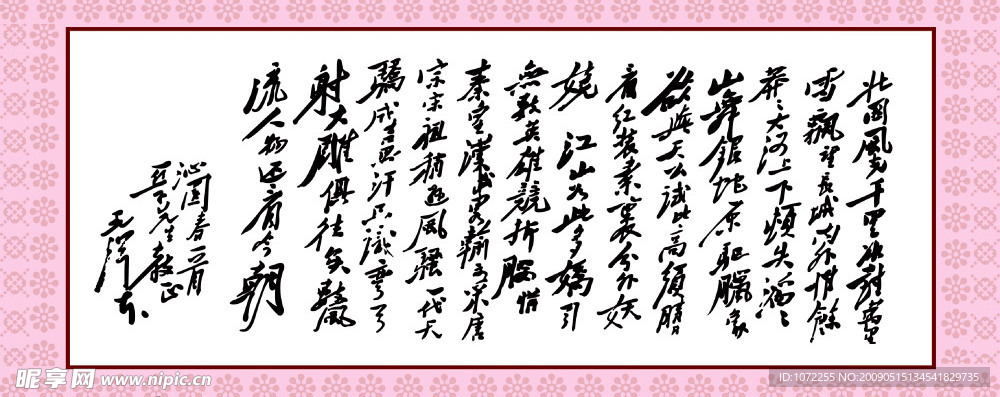 北國風光千里冰封萬里
雪飄望長城内外惟餘
莽〻大河上下頓失滔〻
山舞銀蛇原馳臘象
欲與天公试比高須晴日
看红装素裹分外妖
娆 江山如此多嬌引
無数英雄競折腰惜
秦皇漢武略輸文采唐
宗宋祖稍逊風騷一代天
驕成吉思汗只識弯弓
射大雕俱往矣数風
流人物还看今朝
沁园春一首
亞子先生教正
毛澤东
昵享网 www.nipic.cn
ID:1072255 NO:20090515134541829735